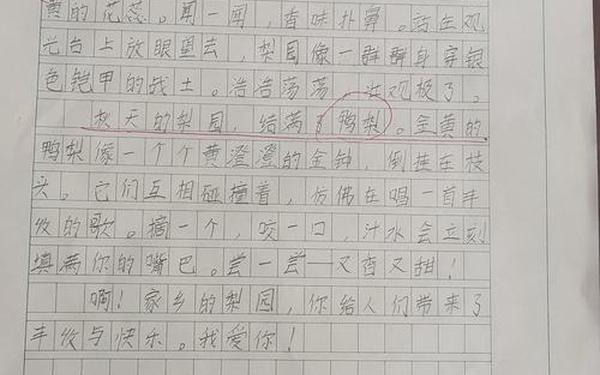 黄的花蕊。闻一闻，香味扑鼻。站在观
光台上放眼望去，梨园像一群群身穿银
色铠甲的战士。浩浩荡荡，壮观极了。
秋天的梨园，结满了鸭梨。金黄的
鸭梨像一个个黄澄澄的金钟，倒挂在枝
头。它们互相碰撞着，仿佛在唱一首丰
收的歌。摘一个，咬一口，汁水会立刻
填满你的嘴巴。尝一尝——又香又甜！
啊！家乡的梨园，你给人们带来了
丰收与快乐。我爱你！